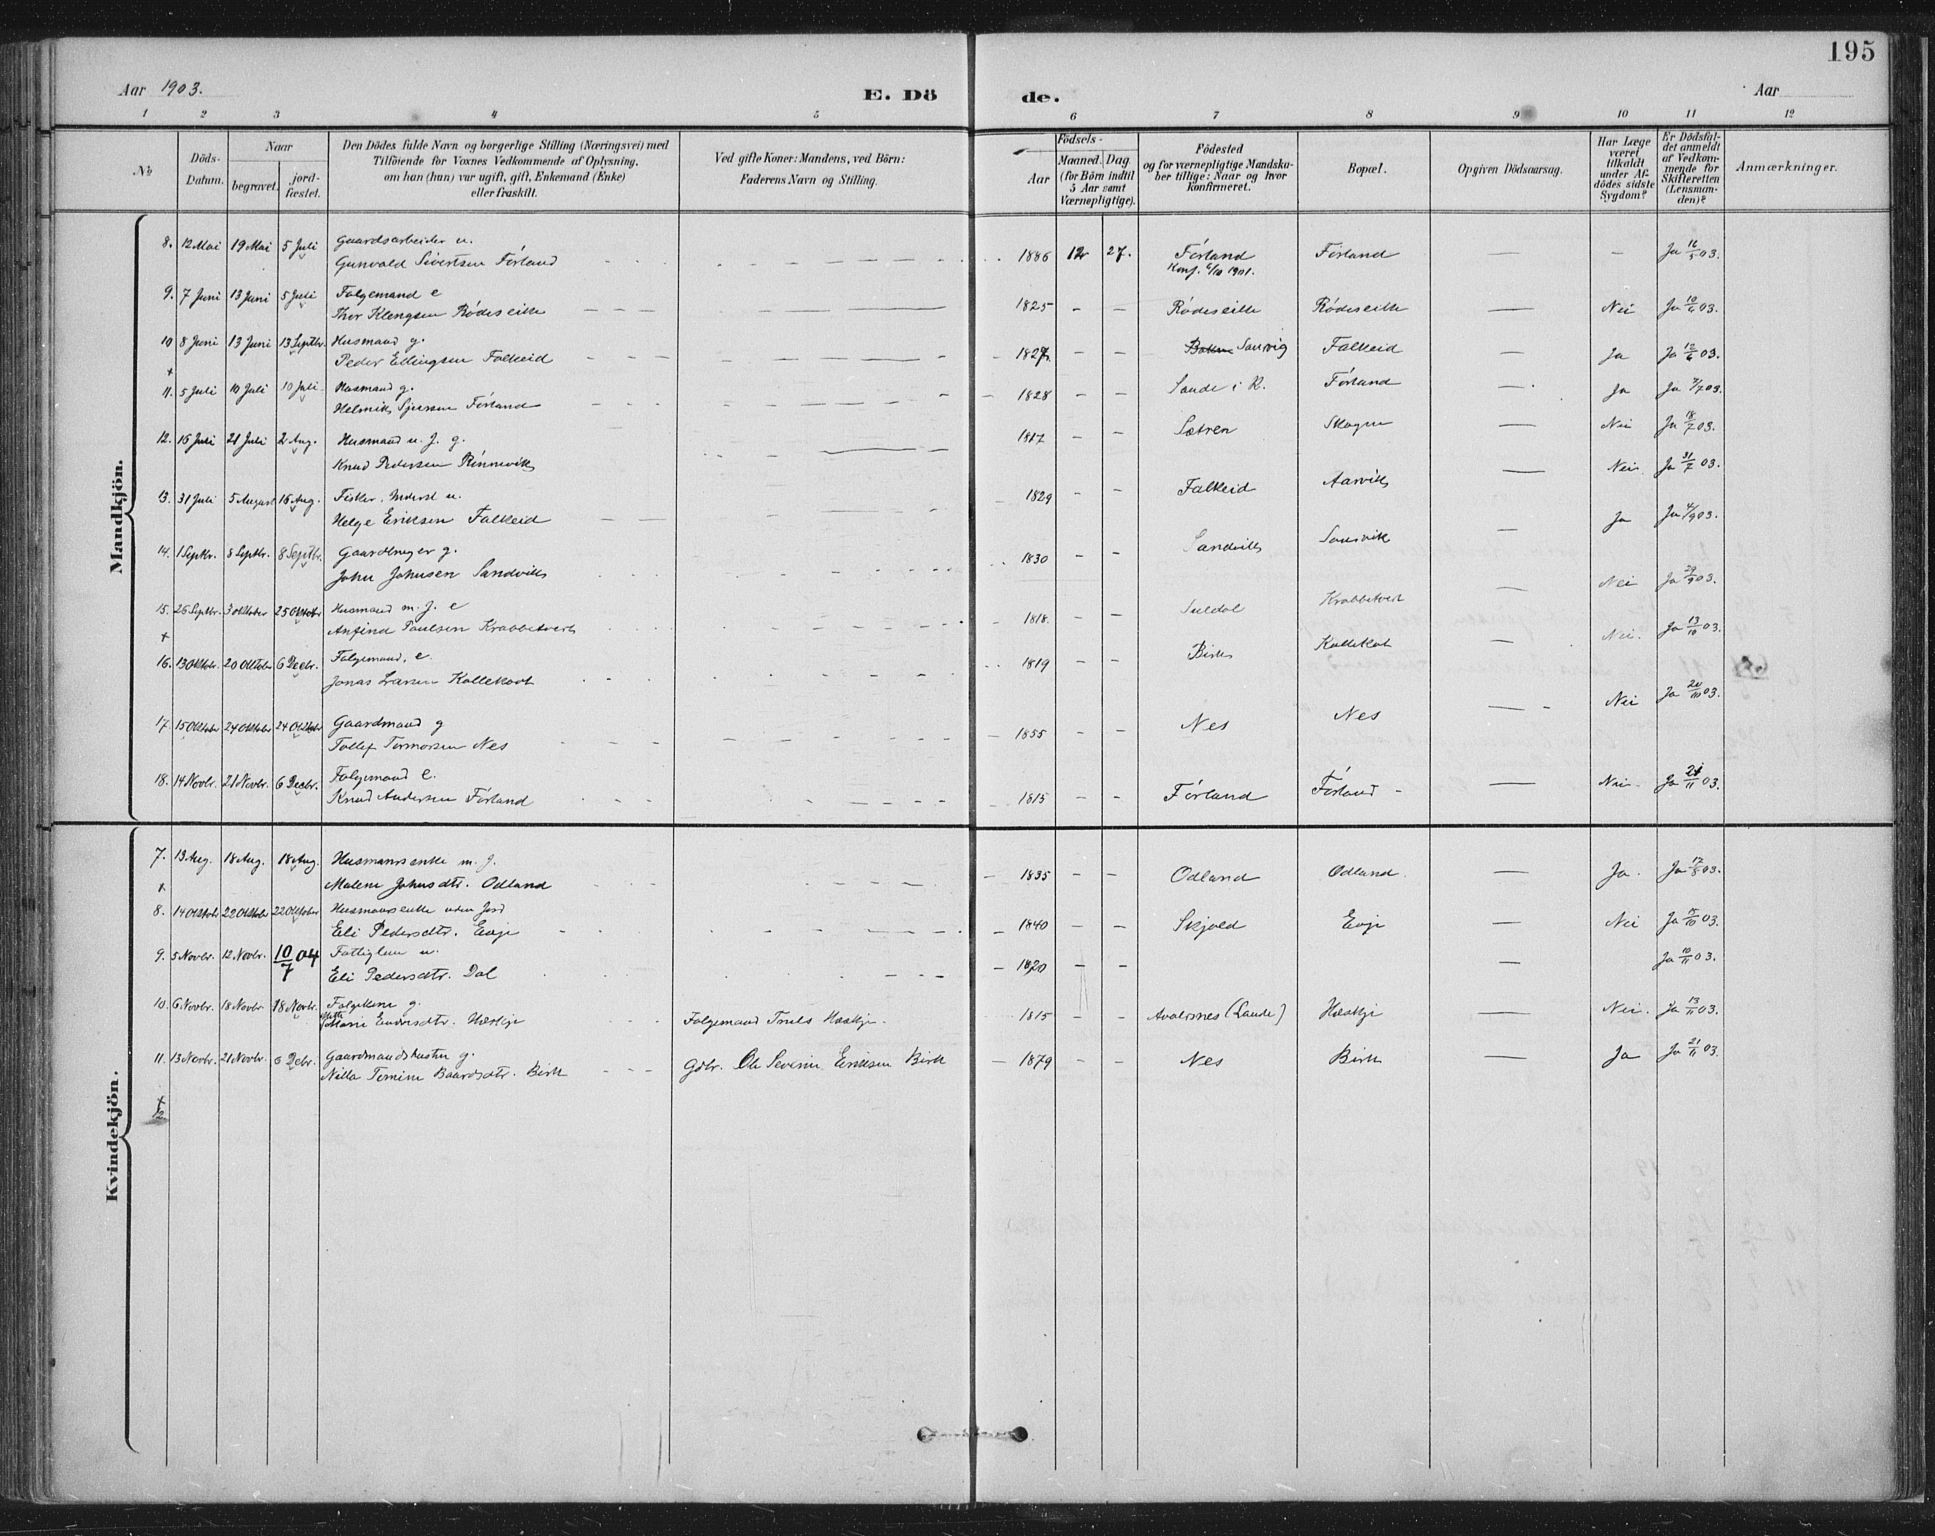 195
Aar 1903.
E. Dö de.
Aar
1 2 3 4 5 6 7 8 9 10 11 12
No
Döds-Datum.
Naar
begravet.
jordfæstet.
Den Dödes fulde Navn og borgerlige Stilling (Næringsvei) med
Tilföiende for Voxnes Vedkommende af Oplysning,
om han (hun) var ugift, gift, Enkemand (Enke)
eller fraskilt.
Ved gifte Koner: Mandens, ved Börn:
Faderens Navn og Stilling.
Födsels-
Aar
Maaned. Dag
(for Börn indtil
5 Aar samt
Værnepligtige).
Födested
og for værnepligtige Mandska-
ber tillige: Naar og hvor
Konfirmeret.
Bopæl.
Opgiven Dödsaarsag.
Har Læge
været
tilkaldt
under Af-
dödes sidste
Sygdom?
Er Dödsfal-
det anmeldt
af Vedkom-
mende for
Skifteretten
(Lensman-
den)?
Anmærkninger.
Mandkjön.
8. 12 Mai 19 Mai 5 Juli Gaardsarbeider u.
Gunvald Sivertsen Førland 1886 12 27. Førland Førland — – Ja 16/5 03.
Konf. 6/10 1901.
9. 7 Juni 13 Juni 5 Juli Folgemand e
Thor Klengsen Rødeseike 1825 – – Rødeseike Rødeseike — Nei Ja 10/6 03.
10 8 Juni 13 Juni 13 Septbr. Husmand g.
Peder Ellingsen Falkeid 1827 – – Sanvig Falkeid — Ja Ja 12/6 03.
+
11. 5 Juli 10 Juli 10 Juli Husmand g.
Helmik Førland 1828 – – Sande i R. Førland — Ja Ja 7/7 03.
12. 15 Juli 21 Juli 2 Aug. Husmand u. J. g.
Knud Pedersen Rønnevik 1817 – – Sætren — Nei Ja 18/7 03.
13. 31 Juli 5 August 16 Aug. Fisker, Inderst u.
Helge Eriksen Falkeid 1829 – – Falkeid Aarvik — Nei Ja 31/7 03.
14. 1 Septbr. 8 Septbr. 8 Septbr. Gaardbruger g.
John Johnsen Sandvik 1830 – – Sandvik — Ja Ja 4/9 03.
15. 26 Septbr. 3 Oktober 25 Oktober Husmand m. J. e
Anfind Paulsen Krabbetveit 1818. – Suldal Krabbetveit — Nei Ja 29/9 03.
+
16. 13 Oktbr. 20 Oktober 6 Decbr. Folgemand, e.
Jonas Larsen Kollekodt 1819 – – Birk — Nei. Ja 13/10 03.
17. 15 Oktober 24 Oktober 24 Oktober Gaardmand g
Tollef Tormorsen Nes 1855 Nes Nes — Nei Ja 20/10 03.
18. 14 Novbr. 21 Novbr. 6 Decbr. Folgemand e.
Knud Andersen Førland 1815 – – Førland Førland — Nei Ja 21/11 03.
Kvindekjön.
7. 13 Aug. 18 Aug. 18 Aug. Husmansenke m. J.
Malene Johnsdtr. Odland 1835 – – Odland Odland. — Ja. Ja 17/8 03.
+
8. 14 Oktober 22 Oktober 22 Oktober Husmansenke uden Jord
Eli Pedersdtr. Evje 1840 – – Skjold Evje — Nei Ja 03.
9. 5 Novbr. 12 Novbr. 10/7 04 Fattiglem u.
Eli Pedersdtr. Dal 1820 – – — Ja 10/11 03.
10. 6 Novbr. 18 Novbr. 18 Novbr. Folgekone g.
Marie Hæskje Folgemand Truls Hæskje. 1815 – – Avaldsnes Hæskje — Nei. Ja 13/11 03.
11. 13 Novbr. 21 Novbr. 6 Decbr. Gaardmandshustru g.
Nilla Baardsdtr. Birk Gdbr. Ole Severin Eriksen Birk 1879 – – Nes Birk — Ja Ja 21/11 03.
+
12